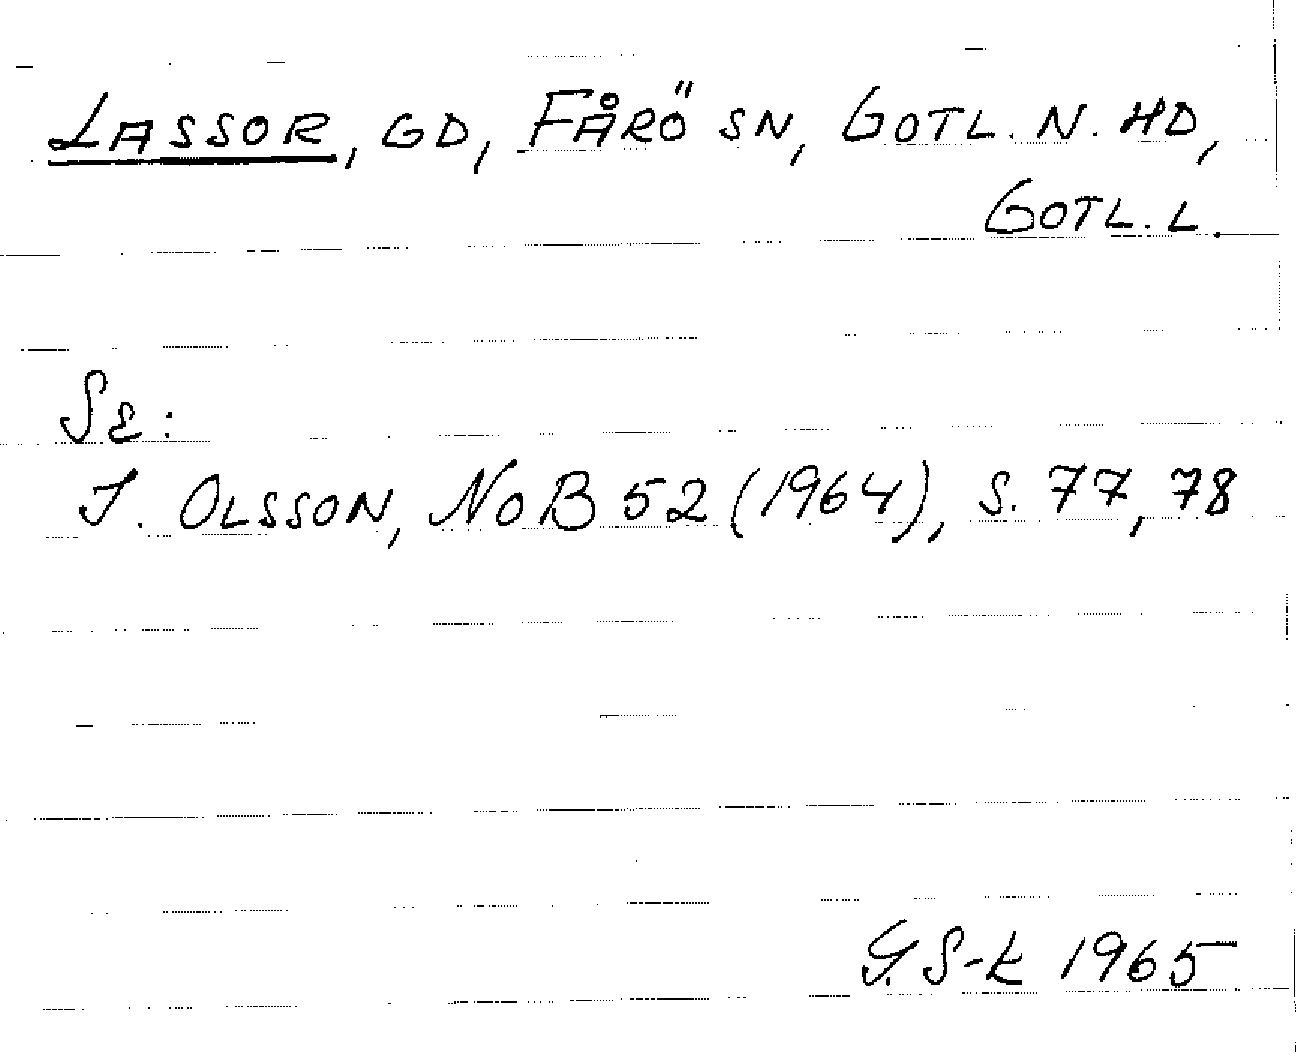 LASSOR, GD, FÅRÖ SN, GOTL. N. HD,
GOTL. L.
SE:
I. OLSSON, NoB 52 (1964), S. 77, 78
G. S-K 1965